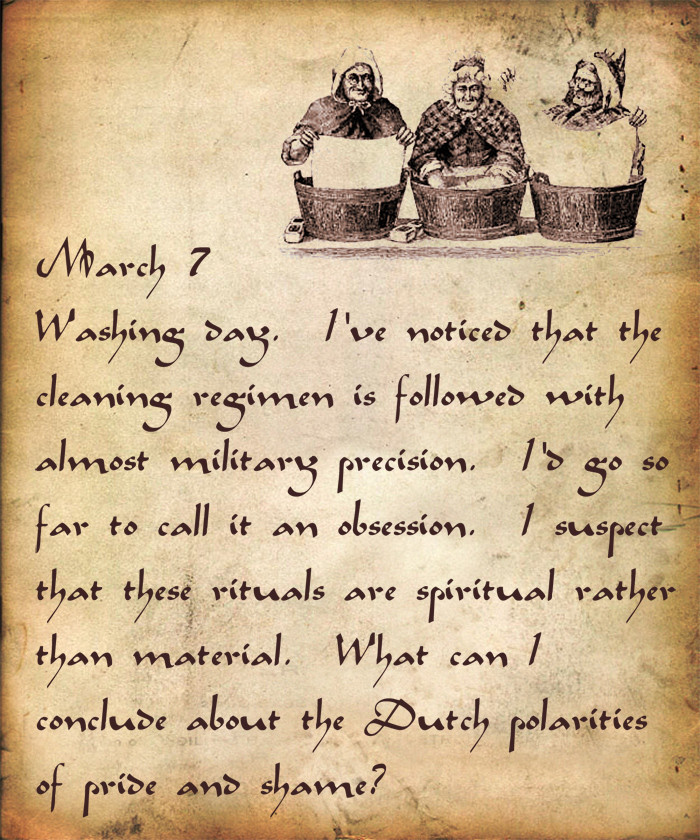 March 7
Washing day. I've noticed that the
cleaning regimen is followed with
almost military precision. I'd go so
far to call it an obsession. I suspect
that these rituals are spiritual rather
than material. What can I
conclude about the Dutch polarities
of pride and shame?